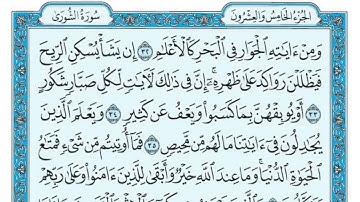 الجزء الخامس والعشرون سورة الشورى
وَمِنْ ءَايَٰتِهِ ٱلْجَوَارِ فِى ٱلْبَحْرِ كَٱلْأَعْلَٰمِ ٣٢ إِن يَشَأْ يُسْكِنِ ٱلرِّيحَ
فَيَظْلَلْنَ رَوَاكِدَ عَلَىٰ ظَهْرِهِۦٓ إِنَّ فِى ذَٰلِكَ لَءَايَٰتٍ لِّكُلِّ صَبَّارٍ شَكُورٍ
٣٣ أَوْ يُوبِقْهُنَّ بِمَا كَسَبُوا۟ وَيَعْفُ عَن كَثِيرٍ ٣٤ وَيَعْلَمَ ٱلَّذِينَ
يُجَٰدِلُونَ فِىٓ ءَايَٰتِنَا مَا لَهُم مِّن مَّحِيصٍ ٣٥ فَمَآ أُوتِيتُم مِّن شَىْءٍ فَمَتَٰعُ
ٱلْحَيَوٰةِ ٱلدُّنْيَا وَمَا عِندَ ٱللَّهِ خَيْرٌ وَأَبْقَىٰ لِلَّذِينَ ءَامَنُوا۟ وَعَلَىٰ رَبِّهِمْ